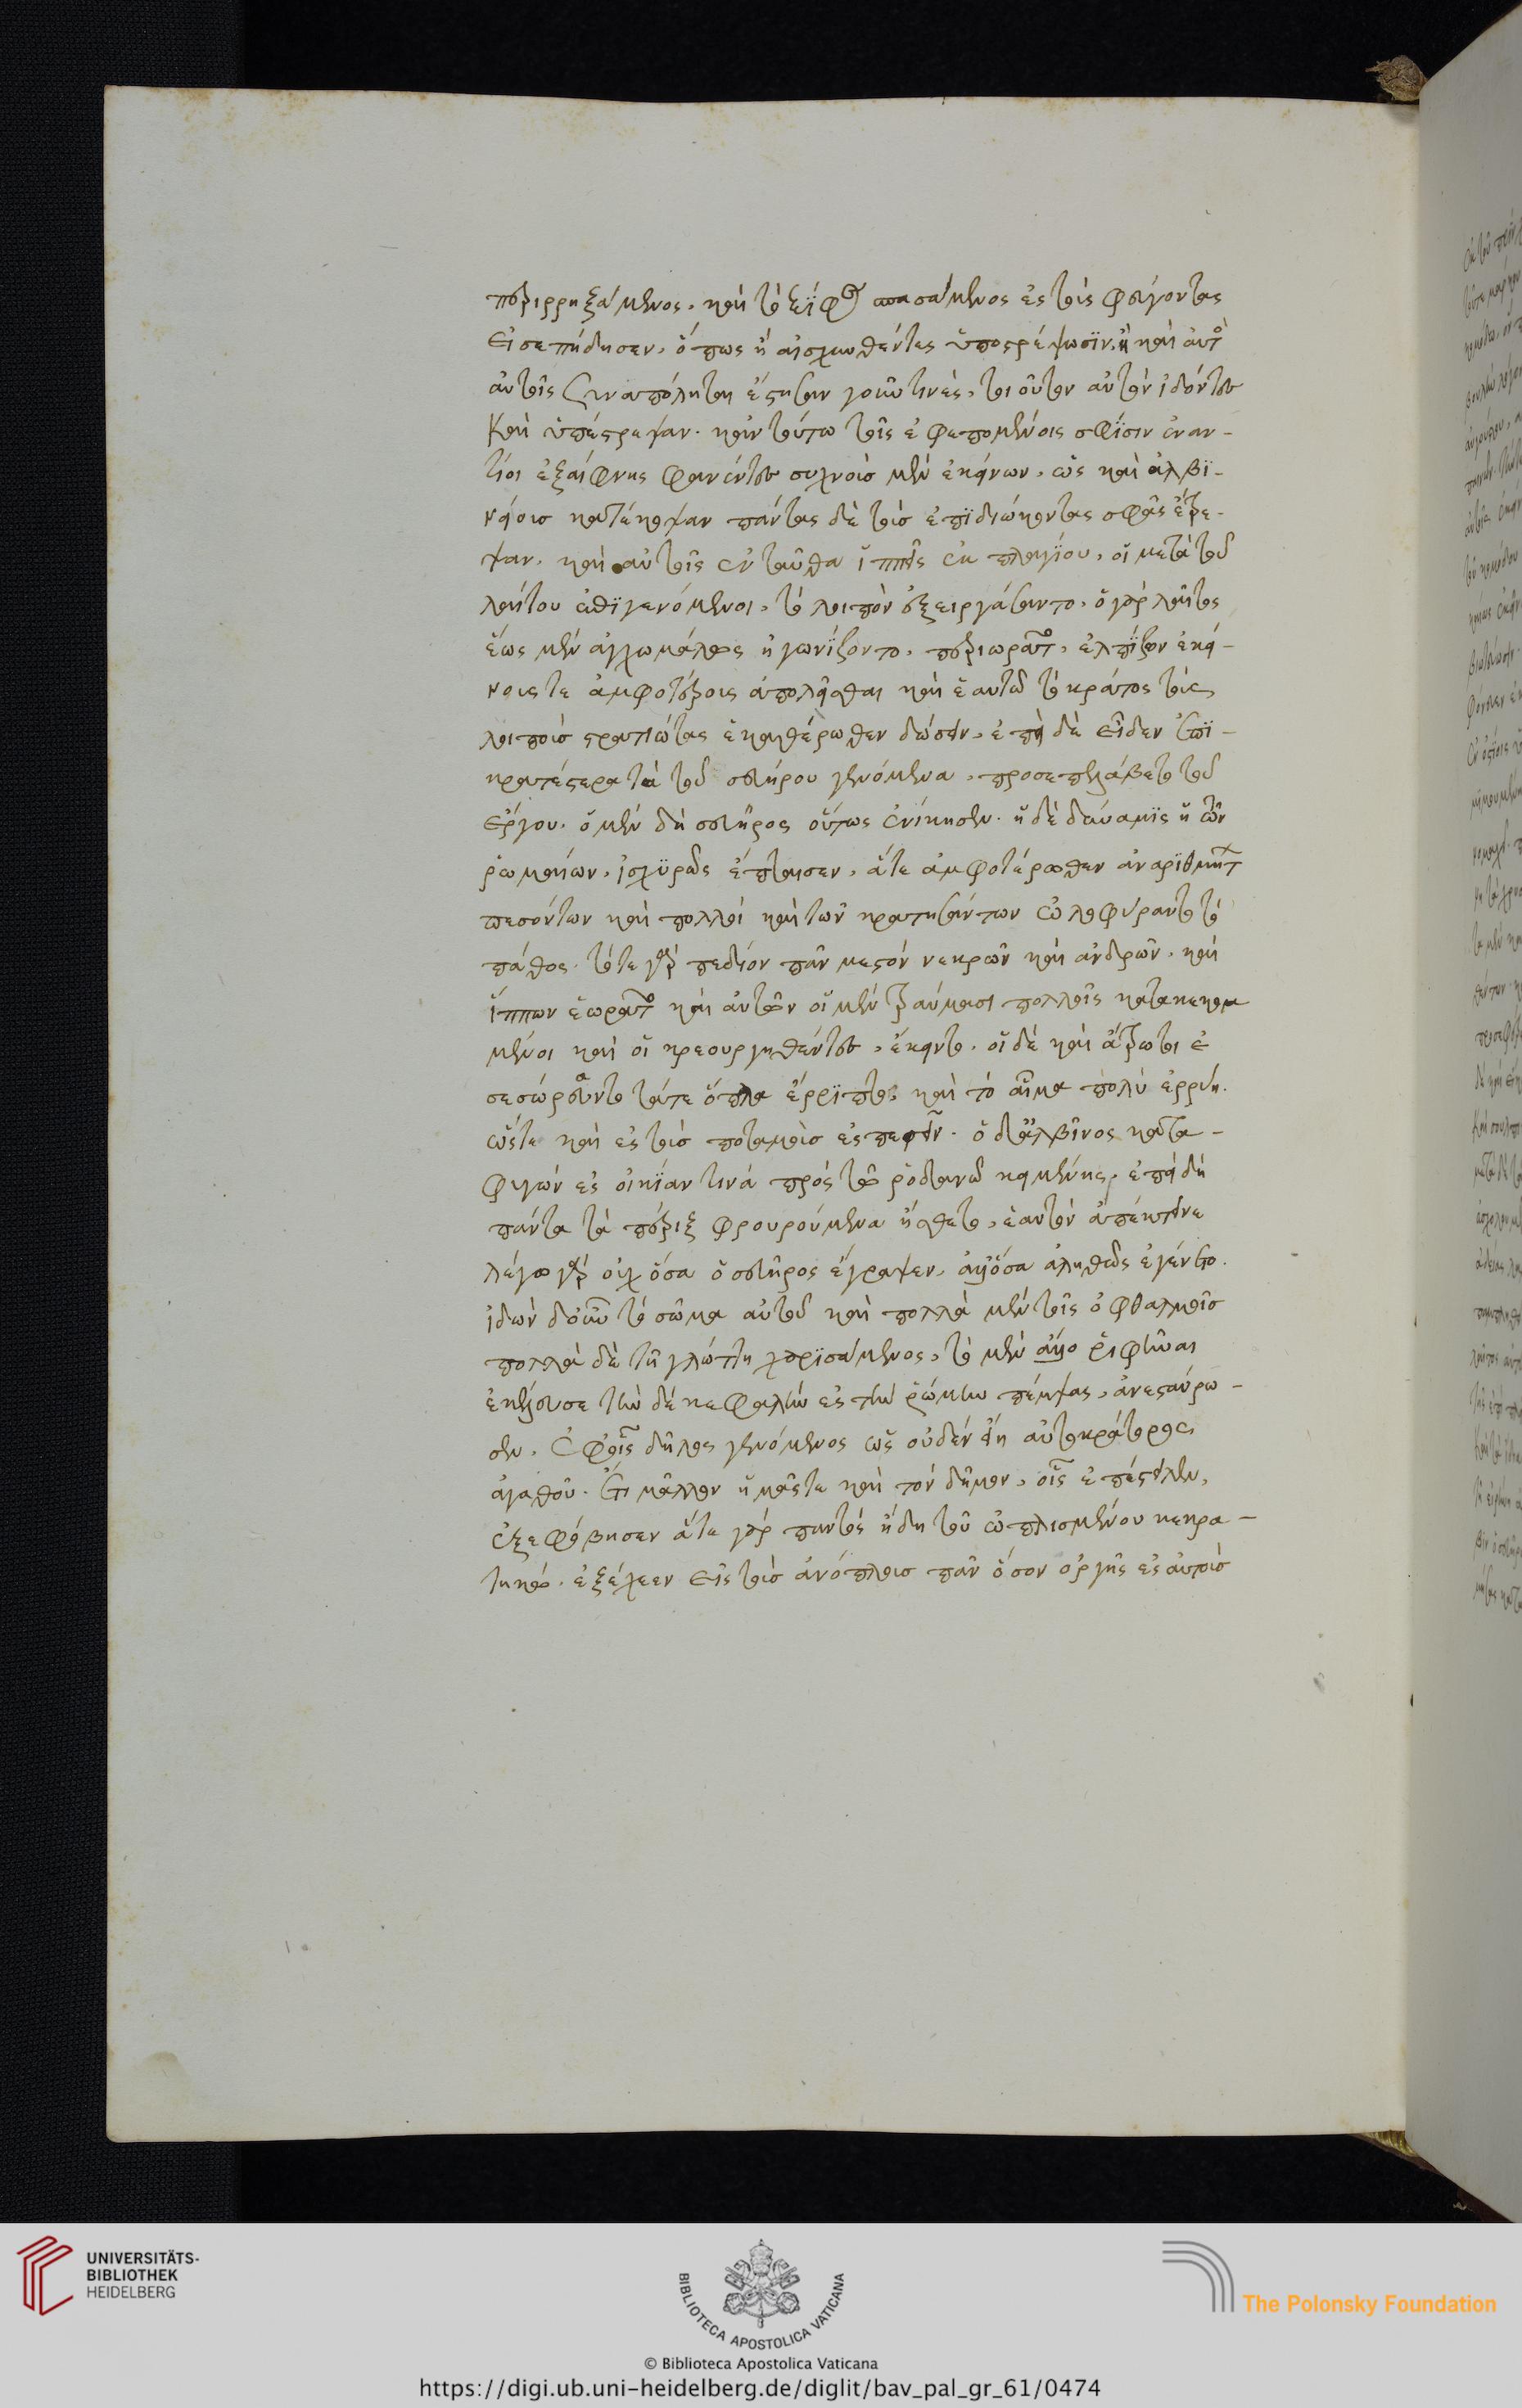 περιρρηξάμενος. καὶ τὸ ξίφος σπασάμενος ἐς τοὺς φεύγοντας
εἰσεπήδησεν. ὅπως ἢ αἰσχυνθέντες ὑποστρέψωσιν. ἢ καὶ αὐτὸς
αὐτοῖς συναπόληται ἔστησαν γοῦν τινὲς. τοιοῦτον αὐτὸν ἰδόντες
καὶ ὑπέστρεψαν. κἀν τούτω τοῖς ἐφεπομένοις σφίσιν ἐναν-
τίοι ἐξαίφνης φανέντες συχνοὺς μὲν ἐκείνων. ὡς καὶ ἀλβι-
νείους κατέκοψαν πάντας δὲ τοὺς ἐπιδιώκοντας σφᾶς ἔτρε-
ψαν. καὶ αὐτοῖς ἐνταῦθα ἱππεῖς ἐκ πλαγίου. οἱ μετὰ τοῦ
λαίτου ἐπιγενόμενοι. τὸ λοιπὸν ἐξειργάσαντο. ὁ γὰρ λαῖτος
ἕως μὲν ἀγχωμάλως ἠγωνίζοντο. περιεωρᾶτο. ἐλπίζων ἐκεί-
νους τε ἀμφοτέρους ἀπολεῖσθαι καὶ ἑαυτῶ τὸ κράτος τοὺς
λοιποὺς στρατιώτας ἑκατέρωθεν δώσειν. ἐπεὶ δὲ εἶδεν ἐπι-
κρατέστερα τὰ τοῦ σεβήρου γενόμενα. προσεπελάβετο τοῦ
ἔργου. ὁ μὲν δὴ σεβῆρος οὕτως ἐνίκησεν. ἡ δὲ δύναμις ἡ τῶν
ῥωμαίων. ἰσχυρῶς ἔπταισεν. ἅτε ἀμφοτέρωθεν ἀναριθμήτων
πεσόντων καὶ πολλοὶ καὶ τῶν κρατησάντων ὠλοφύραντο τὸ
πάθος. τό τε γὰρ πεδίον πᾶν μεστὸν νεκρῶν καὶ ἀνδρῶν. καὶ
ἵππων ἑωρᾶτο καὶ αὐτῶν οἱ μὲν τραύμασι πολλοῖς κατακεκομ
μένοι καὶ οἱ κρεουργηθέντες. ἔκειντο. οἱ δὲ καὶ ἄτρωτοι ἐ
σεσώρευντο τά τε ὅπλα ἔρριπτο. καὶ τὸ αἷμα πολὺ ἐρρύη.
ὥστε καὶ ἐς τοὺς ποταμοὺς ἐσπεσεῖν. ὁ δ' ἀλβῖνος κατα-
φυγὼν ἐς οἰκίαν τινὰ πρὸς τῶ ῥοδανῶ κειμένης. ἐπειδὴ
πάντα τὰ πέριξ φρουρούμενα ᾔσθετο. ἑαυτὸν ἀπέκτεινε
λέγω γὰρ οὐχ ὅσα ὁ σεβῆρος ἔγραψεν. ἀλλ' ὅσα ἀληθῶς ἐγένετο.
ἰδὼν δ' οὖν τὸ σῶμα αὐτοῦ καὶ πολλὰ μὲν τοῖς ὀφθαλμοῖς
πολλὰ δὲ τῆ γλώττη χαρισάμενος. τὸ μὲν ἄλλο ῥιφῆναι
ἐκέλευσε τὴν δὲ κεφαλὴν ἐς τὴν ῥώμην πέμψας. ἀνεσταύρω-
σεν. ἐφ' οἷς δῆλος γενόμενος ὡς οὐδὲν εἴη αὐτοκράτορος
ἀγαθοῦ. ἔτι μᾶλλον ἡμᾶς τε καὶ τὸν δῆμον. οἷς ἐπέστειλεν.
ἐξεφόβησεν ἅτε γὰρ παντὸς ἤδη τοῦ ὡπλισμένου κεκρα-
τηκώς. ἐξέχεεν εἰς τοὺς ἀνόπλους πᾶν ὅσον ὀργῆς ἐς αὐτοὺς
UNIVERSITÄTS-
BIBLIOTHEK
HEIDELBERG
BIBLIOTECA APOSTOLICA VATICANA
The Polonsky Foundation
© Biblioteca Apostolica Vaticana
https://digi.ub.uni-heidelberg.de/diglit/bav_pal_gr_61/0474